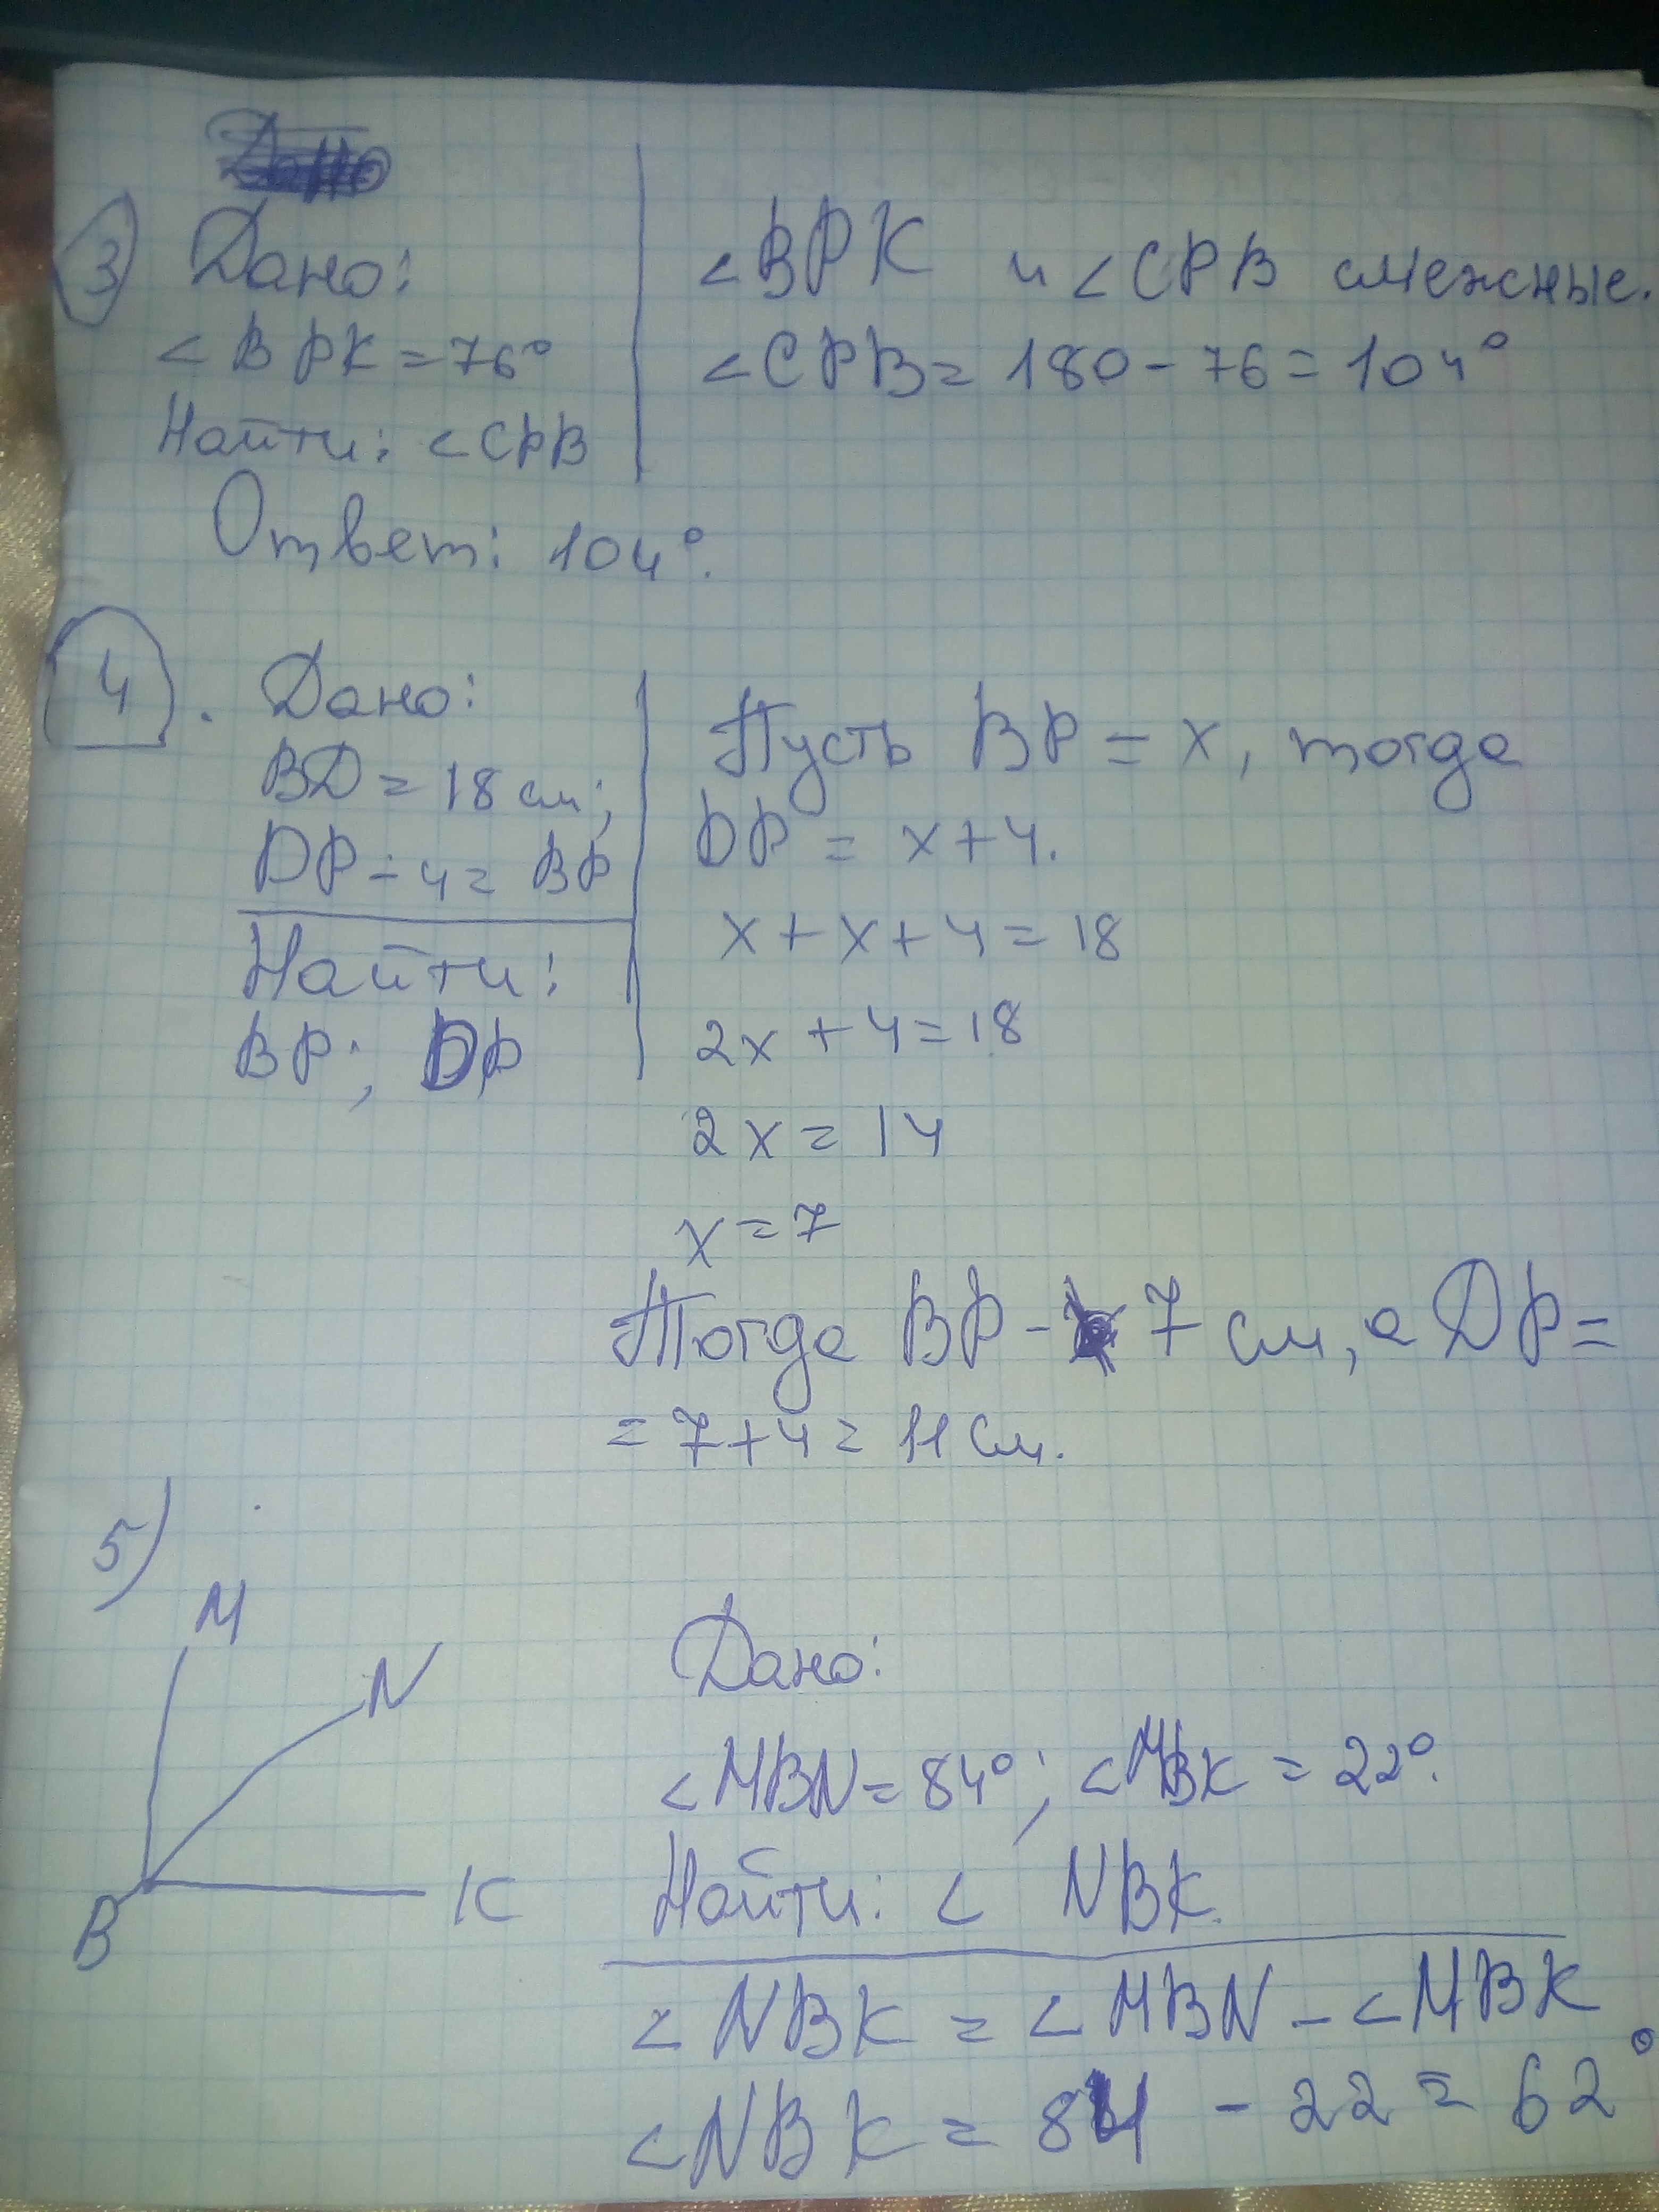 3 Дано:
<BPK=76°
Найти: <CPB
<BPK и <CPB смежные.
<CPB=180-76=104°
Ответ: 104°.
4. Дано:
BD=18 см;
DP-4=BP
Найти:
BP; DP
Пусть BP=x, тогда
DP=x+4.
x+x+4=18
2x+4=18
2x=14
x=7
Тогда BP-7 см, а DP=
=7+4=11 см.
5)
M
N
K
B
Дано:
<MBN=84°; <MBK=22°.
Найти: < NBK.
<NBK=<MBN-<MBK
<NBK=84-22=62°